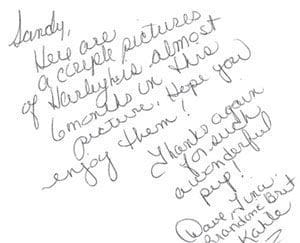 Sandy,
Here are
a couple pictures
of Harley, he's almost
6 months in this
picture. Hope you
enjoy them!
Thanks again
for such
a wonderful
pup!
Dave, Tina,
Brandon & Bret
Kahle